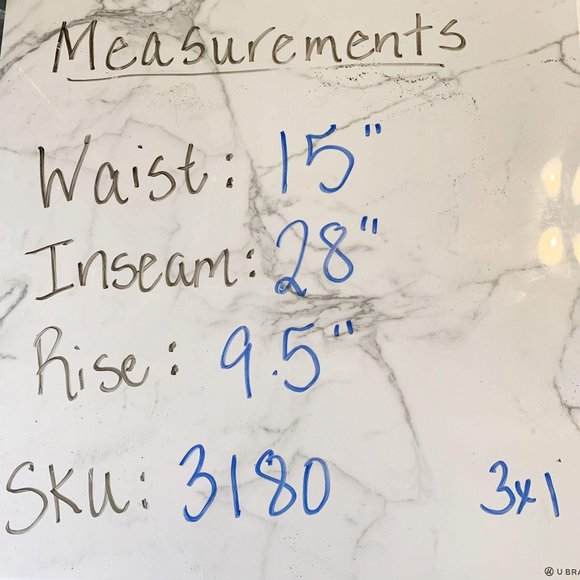 Measurements
Waist: 15"
Inseam: 28"
Rise: 9.5"
SKU: 3180 3xi
U BRA